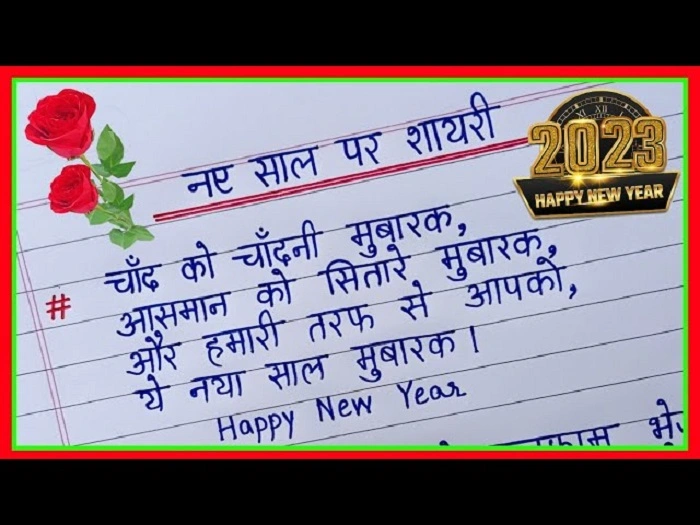 नए साल पर शायरी
2023
HAPPY NEW YEAR
# चाँद को चाँदनी मुबारक,
आसमान को सितारे मुबारक,
और हमारी तरफ से आपको,
ये नया साल मुबारक।
Happy New Year